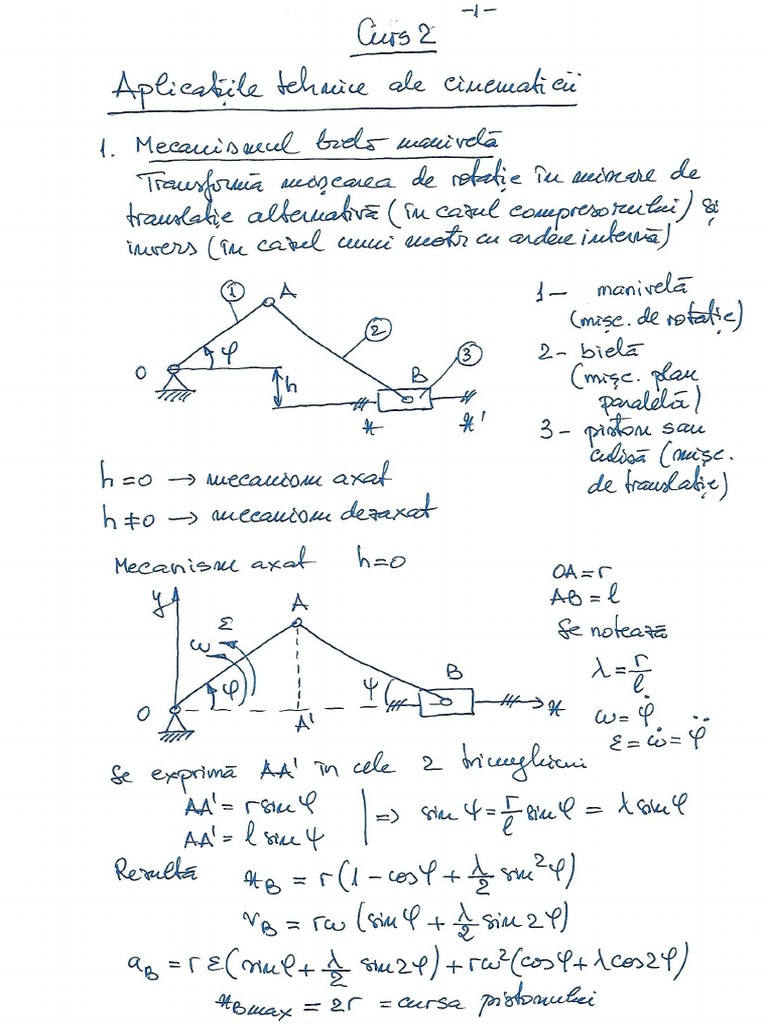 -1-
Curs 2
Aplicațiile tehnice ale cinematicii
1. Mecanismul bielă manivelă
Transformă mișcarea de rotație în mișcare de
translație alternativă (în cazul compresorului) și
invers (în cazul unui motor cu ardere internă)
1
A
2
3
O
φ
h
B
x
x'
1 - manivelă
(mișc. de rotație)
2 - bielă
(mișc. plan
paralelă)
3 - piston sau
culisă (mișc.
de translație)
h = 0 → mecanism axat
h ≠ 0 → mecanism dezaxat
Mecanism axat h = 0
y
A
ε
ω
φ
ψ
B
O
A'
x
OA = r
AB = l
Se notează
λ = r/l
ω = φ̇
ε = ω̇ = φ̈
Se exprimă AA' în cele 2 triunghiuri
AA' = r sin φ
AA' = l sin ψ
=> sin ψ = r/l sin φ = λ sin φ
Rezultă x_B = r(1 - cos φ + λ/2 sin²φ)
v_B = rω (sin φ + λ/2 sin 2φ)
a_B = r ε (sin φ + λ/2 sin 2φ) + rω² (cos φ + λ cos 2φ)
x_Bmax = 2r = cursa pistonului